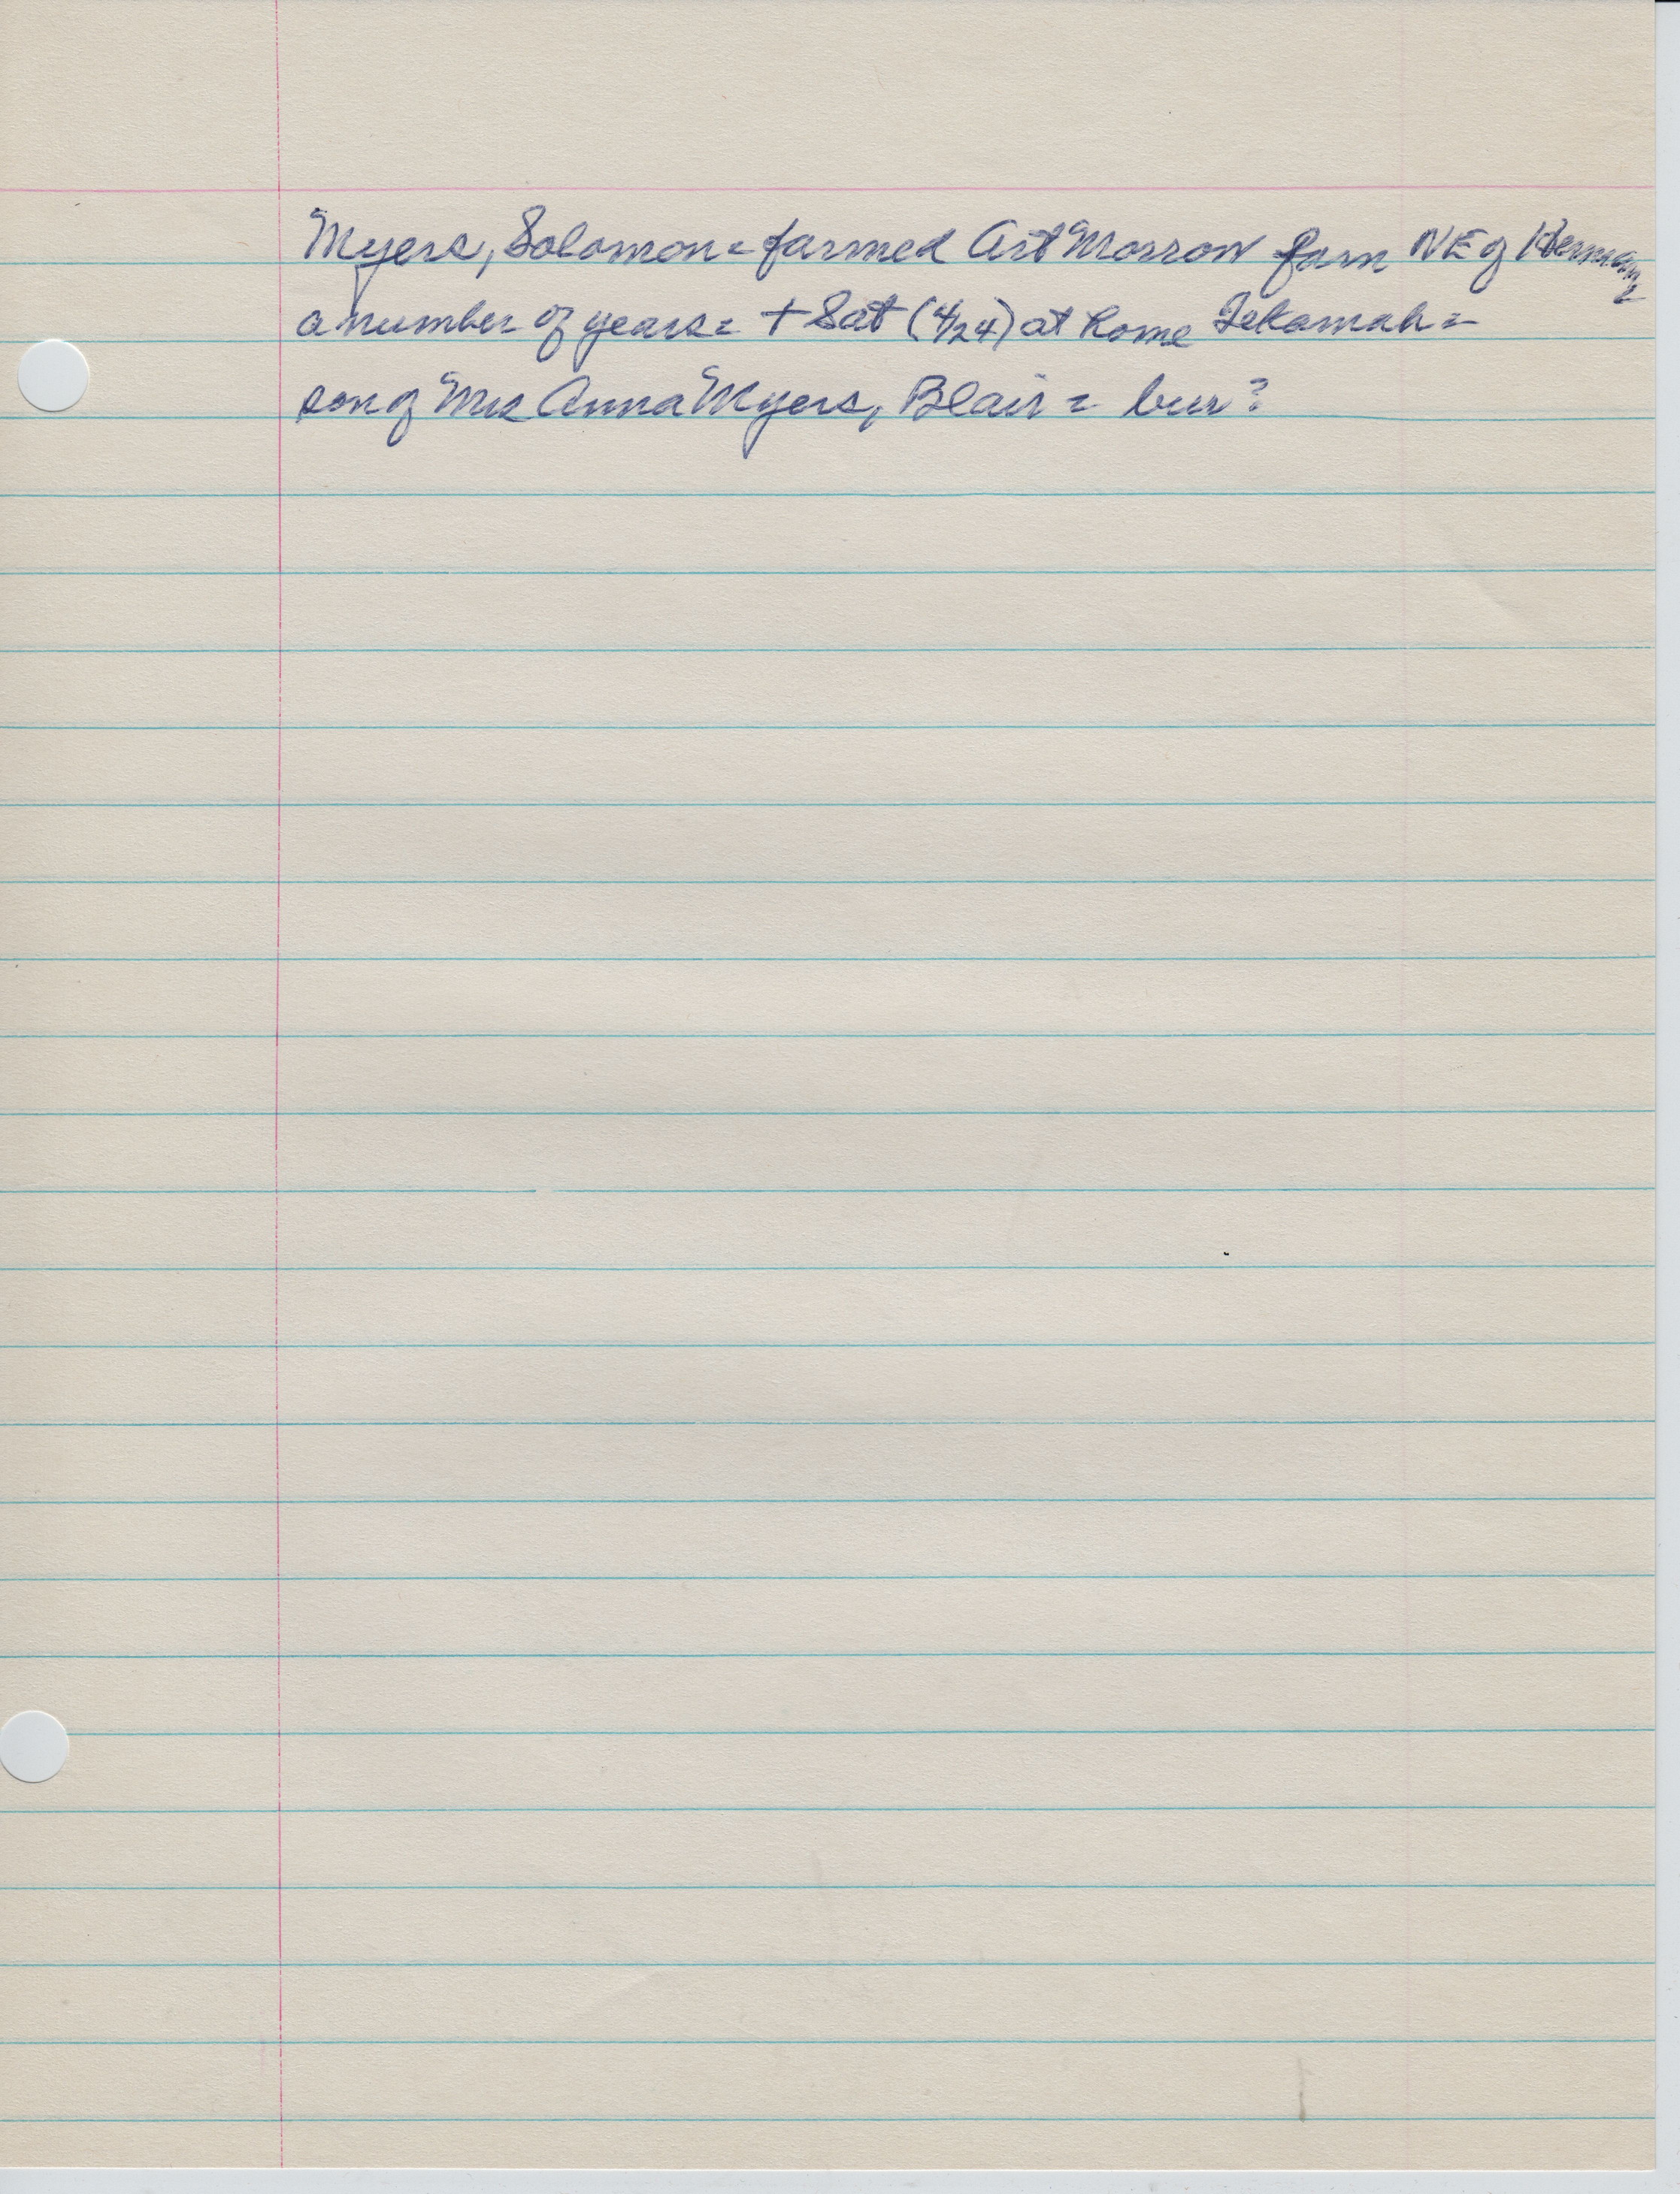 Myers, Solomon = farmed Art Morrow farm NE of Herman =
a number of years = + Sat (4/24) at home Tekamah =
son of Mrs Anna Myers, Blair = bur?